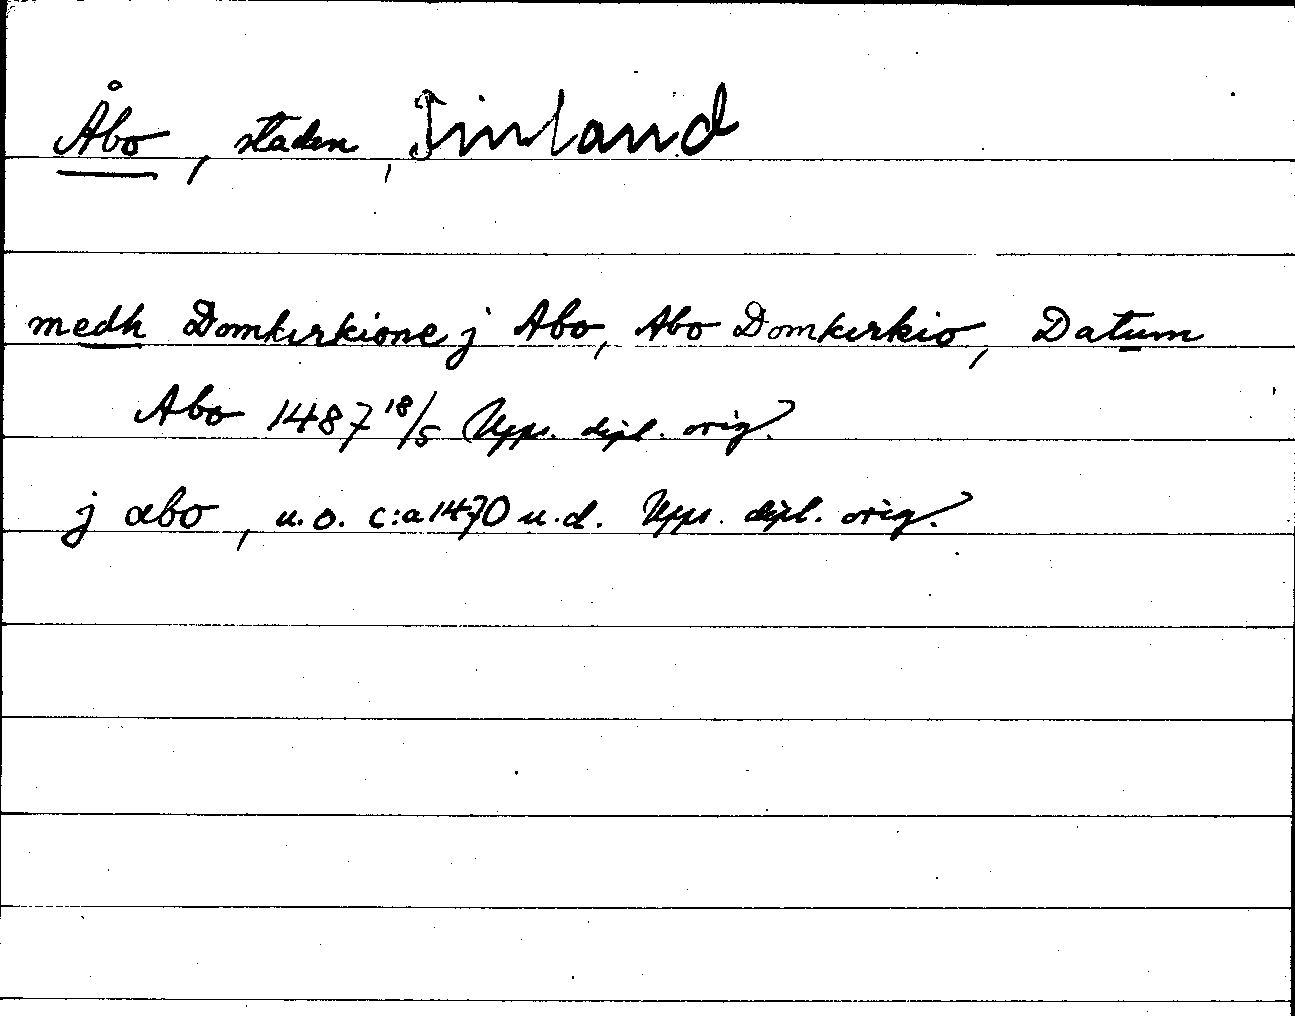 Åbo, staden, Finland
medh Domkirkione j Abo, Abo Domkirkio, Datum
Abo 1487 18/5 Upps. dipl. orig.
j abo, u.o. c:a 1470 u.d. Upps. dipl. orig.